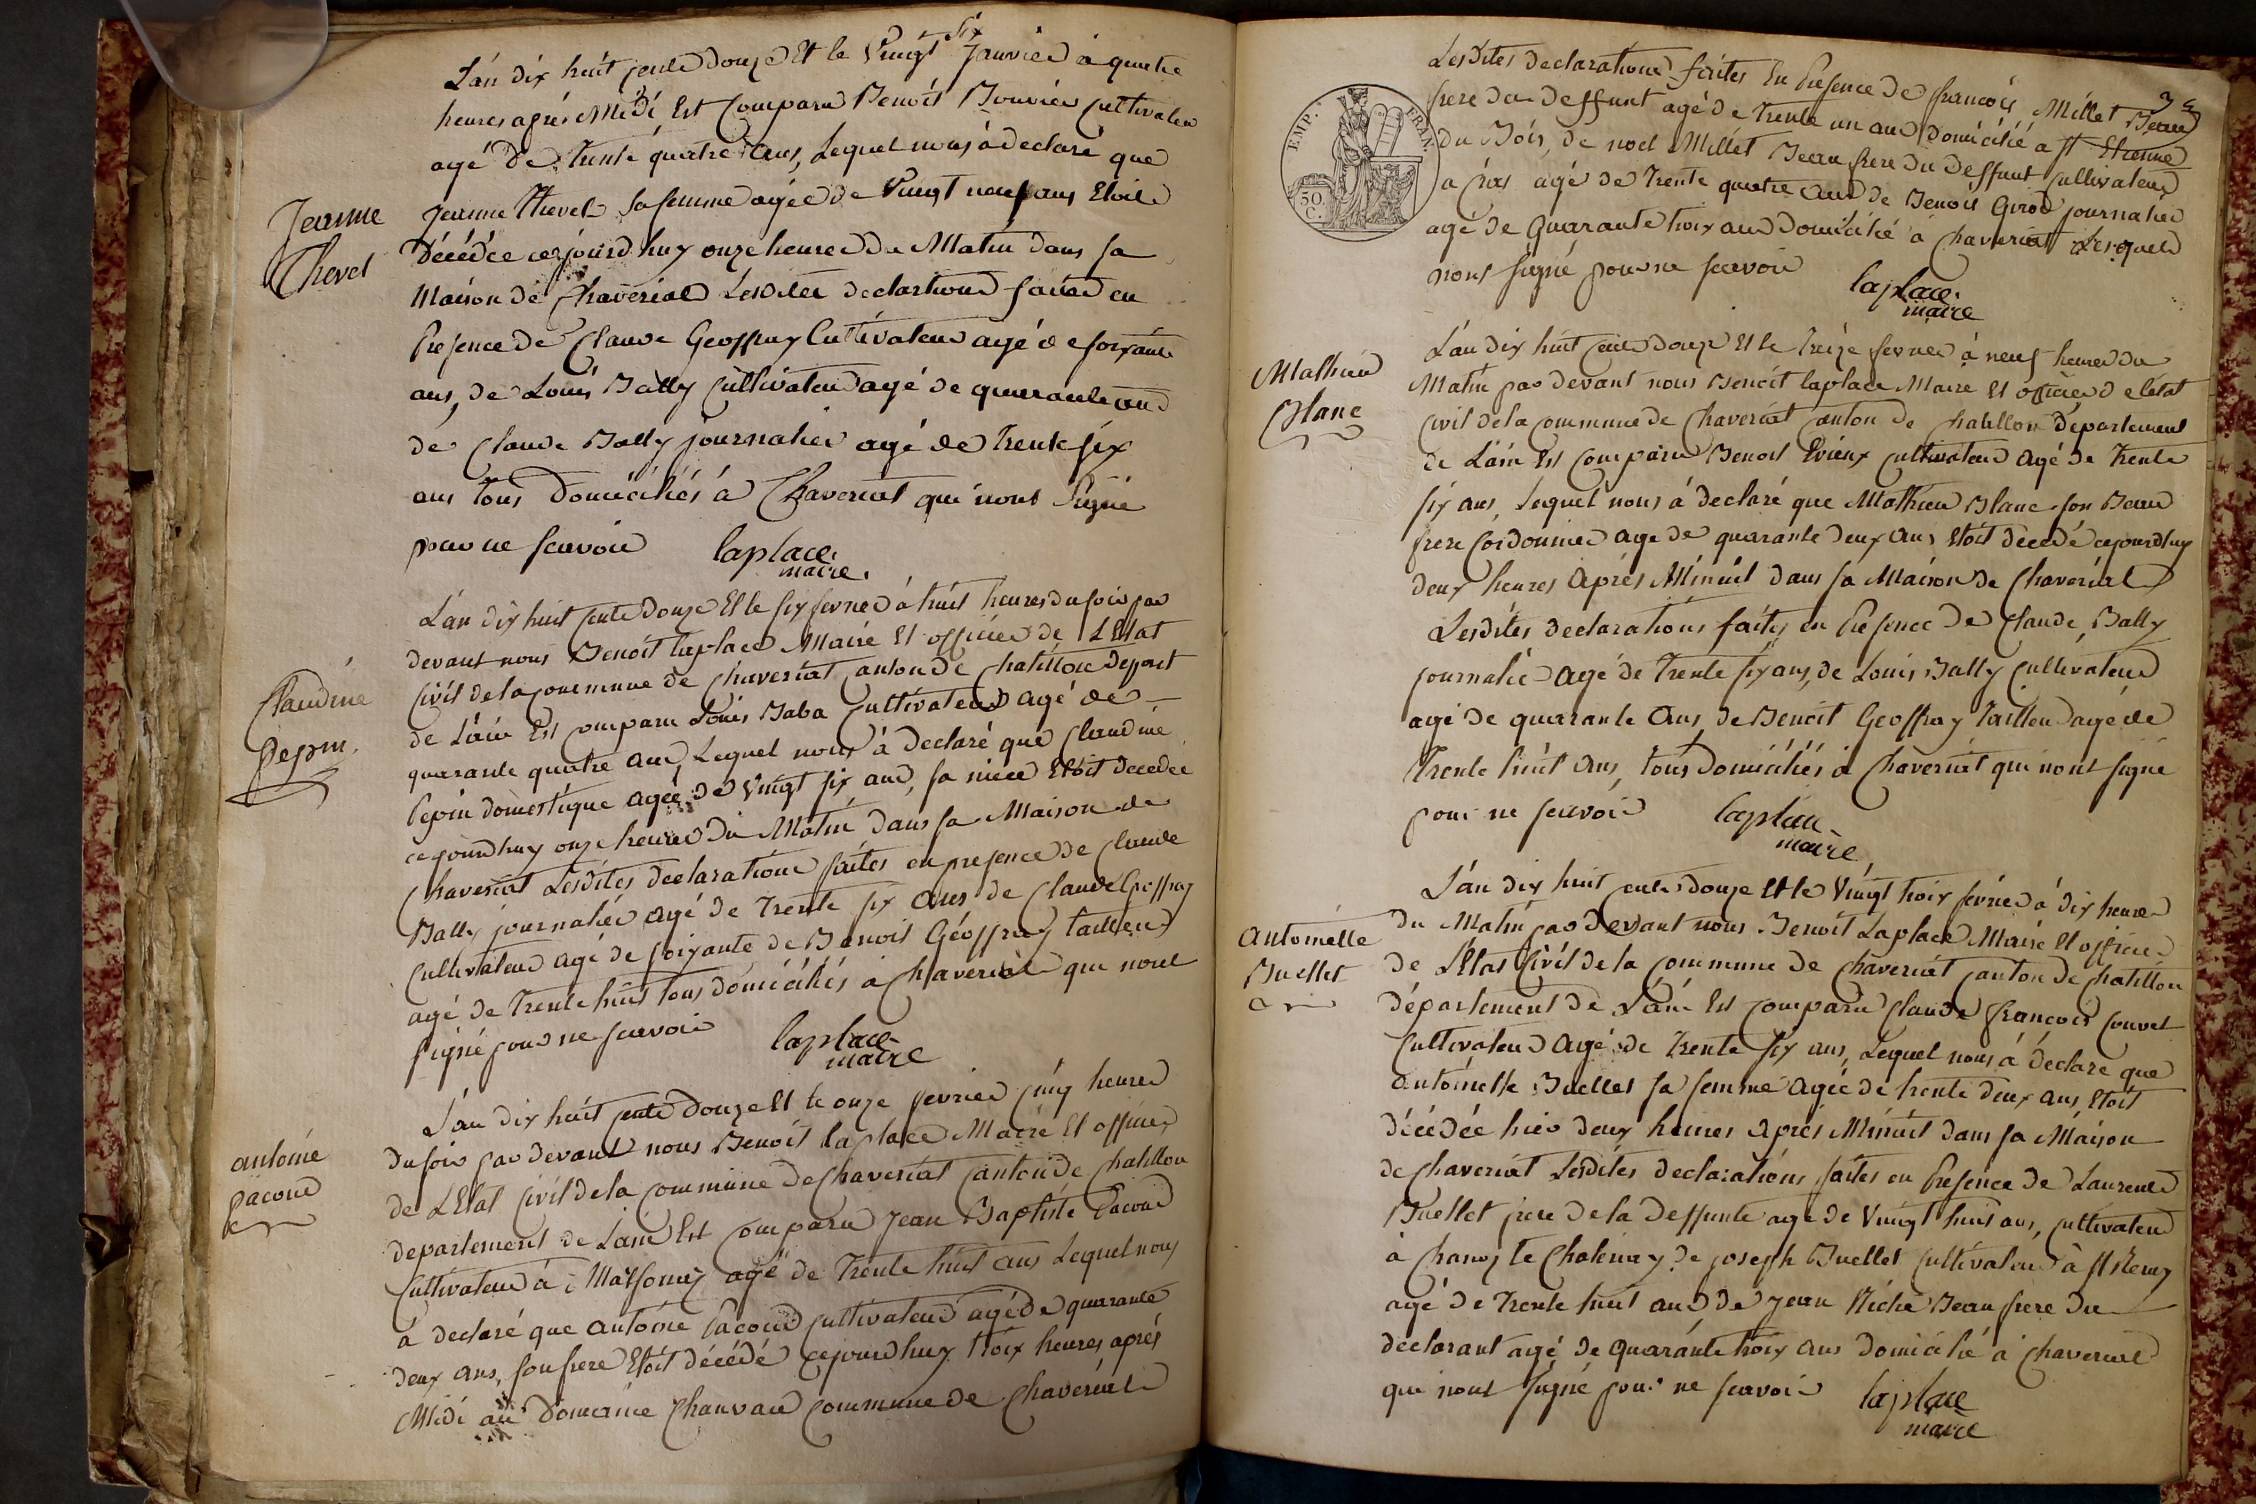 L'an dix huit cents douze Et le Vingt six Janvier à quatre
heures après Midi Est Comparu Benoit Bouvier Cultivateur
agé De Trente quatre ans, Lequel nous à declaré que
Jeanne
Chevet
Jeanne Thevet sa femme agée de Vingt neuf ans Etoit
Décédée cejourd huy onze heures du Matin dans sa
Maison de Chaveriat Lesdites declartions faites en
Presence de Claude Geoffray Cultivateur agé de soixante
ans, de Louis Bally Cultivateur agé de quarante ans
de Claude Bally journalier agé de Trente six
ans tous Domiciliés à Chaveriat qui nont Signé
pour ne scavoir laplace
maire
L'an dix huit cents Douze Et le six fevrier à huit heures du soir par
devant nous Benoit laplace Maire Et officier de L'Etat
Claudine
Pepin
Civil de la Commune de Chaveriat canton de Chatillon Deppart
de L'ain Est comparu Louis Baba Cultivateur agé de
quarante quatre ans, Lequel nous à Declaré que Claudine
Pepin domestique agée de Vingt six ans, sa niece Etoit Decedée
cejourdhuy onze heures Du Matin dans sa Maison de
Chaveriat Lesdites declarations faites en presence de Claude
Bally journalier agé de Trente six ans de Claude Geoffray
Cultivateur agé de soixante de Benoit Géoffray tailleur
agé de Trente huit tous domiciliés à Chaveriat qui nont
signé pour ne scavoir laplace
maire
L'an dix huit cents Douze Et le onze fevrier cinq heures
du soir par devant nous Benoit laplace Maire Et officier
antoine
pacoud
de L'Etat Civil de la Commune De Chaveriat Canton de Chatillon
departement de L'ain Est comparu Jean Baptiste Pacoud
Cultivateur à agé de Trente huit ans Lequel nous
à declaré que antoine Pacoud Cultivateur agé De quarante
deux ans, son frere Etoit décédé cejourdhuy trois heures après
Midi au Domaine Chanvau Commune de Chaveriat
Lesdites declarations faites En Presence De françois Millet Beau
frere du Deffunt agé de Trente un ans domicilié à St Etienne
du Bois, de noel Millet Beau frere du Deffunt Cultivateur
a Cras agé de Trente quatre ans de Benoit Girod journalier
agé de Quarante trois ans Domicilié à Chaveriat Lesquels
nont signé pour ne scavoir laplace
maire
EMP. FRAN.
50
C.
L'an dix huit cents douze Et le Treize fevrier à neuf heures du
Mathieu
Blanc
Matin par devant nous Benoit laplace Maire Et officier de l'état
Civil de la Commune de Chaveriat canton de Chatillon Département
de L'ain Est Comparu Benoit Evieux Cultivateur agé de Trente
six ans, Lequel nous à declaré que Mathieu Blanc son Beau
frere Cordonnier agé de quarante deux ans Etoit decedé cejourdhuy
deux heures Après Minuit dans sa Maison de Chaveriat
Lesdites declarations faites en Presence De Claude, Bally
journalier agé de Trente six ans, de Louis Bally Cultivateur
agé de quarante ans, de Benoit Geoffray tailleur agé de
Trente huit ans, tous Domiciliés à Chaveriat qui nont signé
pour ne scavoir laplace
maire
L'an dix huit cents douze Et le Vingt trois fevrier à dix heures
antoinette
Buellet
du Matin par Devant nous Benoit Laplace Maire Et officier
de L'Etat Civil de la Commune de Chaveriat Canton de Chatillon
département de L'ain Est Comparu Claude françois Couvet
Cultivateur agé de Trente six ans, Lequel nous à déclaré que
antoinette Buellet sa femme agée de trente deux ans Etoit
décédée hier deux heures après Minuit dans sa Maison
de Chaveriat Lesdites declarations faites en Presence de Laurent
Buellet frere de la Deffunte agé de Vingt huit ans, Cultivateur
à Chanoz le Chatenay de joseph Buellet Cultivateur à St Remy
agé de Trente huit ans de Jean Beau frere du
declarant agé de quarante trois ans domicilié à Chaveriat
qui nont signé pour ne scavoir laplace
maire